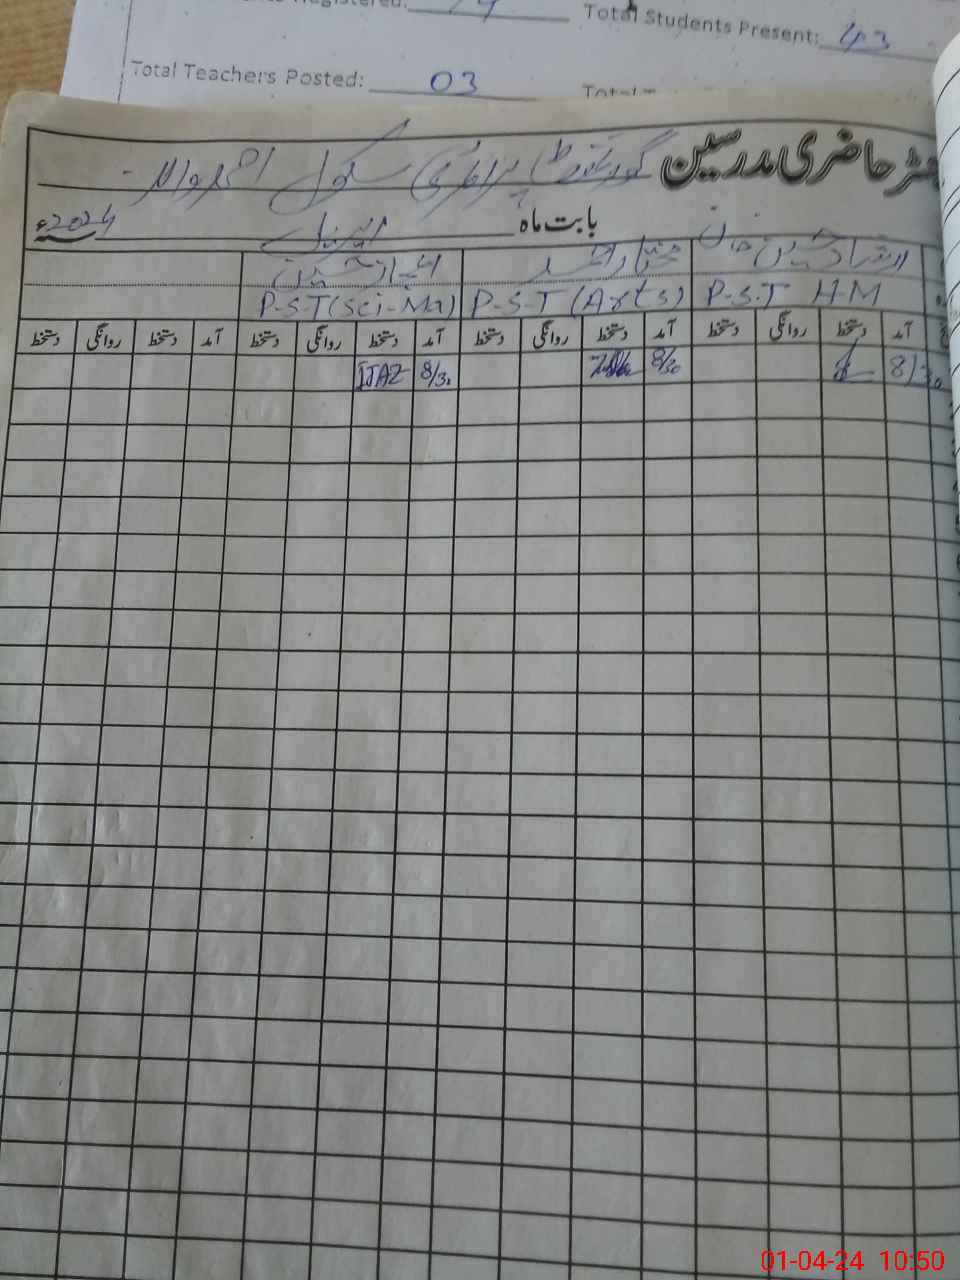 Total Students Present: 43
Total Teachers Posted: 03
حاضری مدرسین گورنمنٹ پرائمری سکول
بابت ماہ اپریل 2024ء
مختار احمد اعجاز حسین
P-S-T H-M P-S-T (Arts) P-S-T (Sci-Ma)
آمد دستخط روانگی دستخط آمد دستخط روانگی دستخط آمد دستخط روانگی دستخط آمد دستخط روانگی دستخط
8/30 8/30 8/30 IJAZ
01-04-24 10:50